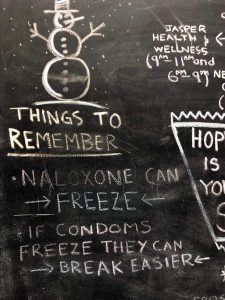 JASPER
HEALTH &
WELLNESS
(9AM - 11AM and
6PM - 9PM)
THINGS TO
REMEMBER
· NALOXONE CAN
→ FREEZE ←
· IF CONDOMS
FREEZE THEY CAN
→ BREAK EASIER ←
HOP
IS
YOU